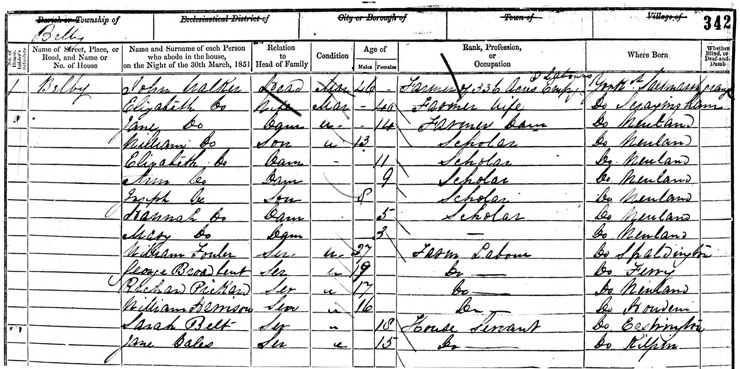 Parish or Township of Ecclesiastical District of City or Borough of Town of Village of 342
Belby
No. of House-holder's Schedule Name of Street, Place, or Road, and Name or No. of House Name and Surname of each Person who abode in the house, on the Night of the 30th March, 1851 Relation to Head of Family Condition Age of Males Females Rank, Profession, or Occupation Where Born Whether Blind, or Deaf-and-Dumb
1 Belby John Walker Head Mar 46 Farmer of 336 Acres Empg Labours York
Elizabeth Do Wife Mar 40 Farmer wife Do Scrayingham
Jane Do Daur u 14 Farmer Daur Do Newland
William Do Son u 13 Scholar Do Newland
Elizabeth Do Daur 11 Scholar Do Newland
Ann Do Daur 9 Scholar Do Newland
Joseph Do Son 8 Scholar Do Newland
Hannah Do Daur 5 Scholar Do Newland
Mary Do Daur 3 — Do Newland
William Fowler Ser u 27 Farm Labour Do Spaldington
George Broadbent Ser u 19 Do Do Ferry
Pickard Ser u 17 Do Do Newland
William Harrison Ser u 16 Do Do Howden
Sarah Belt Ser u 18 House Servant Do Eastrington
Jane Oales Ser u 15 Do Do Kilpin